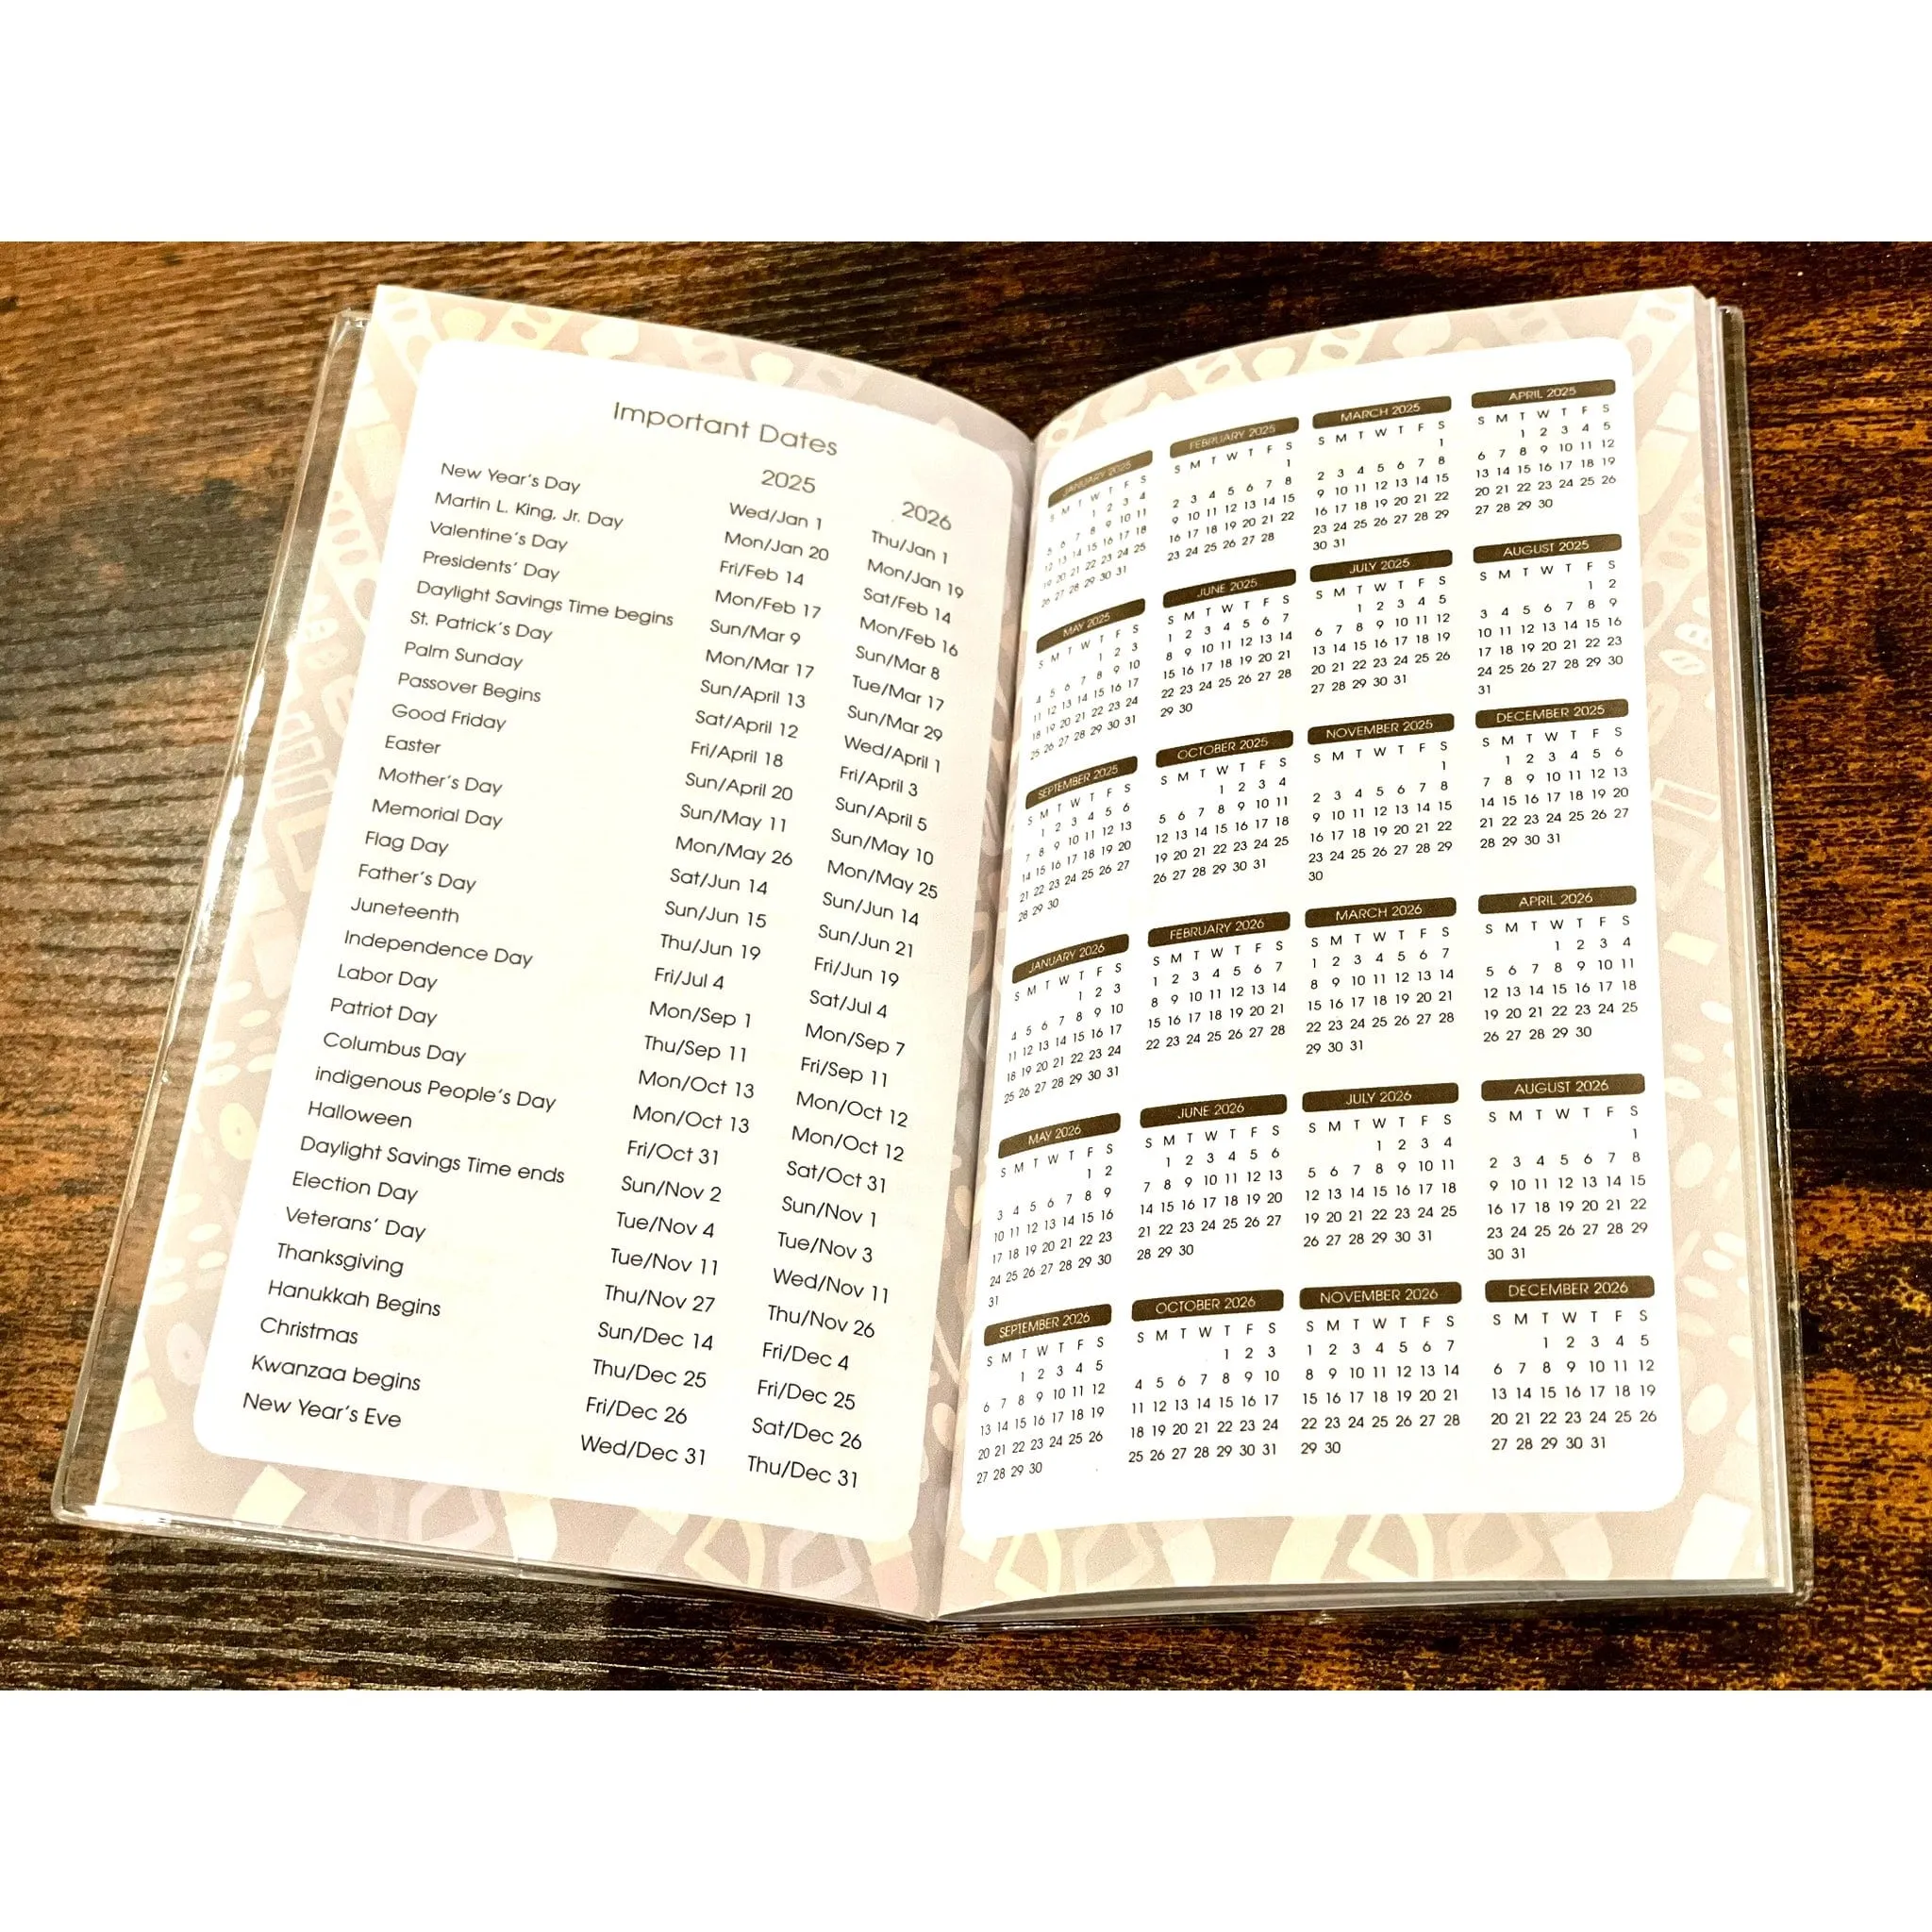 Important Dates
2025 2026
New Year's Day Wed/Jan 1 Thu/Jan 1
Martin L. King, Jr. Day Mon/Jan 20 Mon/Jan 19
Valentine's Day Fri/Feb 14 Sat/Feb 14
Presidents' Day Mon/Feb 17 Mon/Feb 16
Daylight Savings Time begins Sun/Mar 9 Sun/Mar 8
St. Patrick's Day Mon/Mar 17 Tue/Mar 17
Palm Sunday Sun/April 13 Sun/Mar 29
Passover Begins Sat/April 12 Wed/April 1
Good Friday Fri/April 18 Fri/April 3
Easter Sun/April 20 Sun/April 5
Mother's Day Sun/May 11 Sun/May 10
Memorial Day Mon/May 26 Mon/May 25
Flag Day Sat/Jun 14 Sun/Jun 14
Father's Day Sun/Jun 15 Sun/Jun 21
Juneteenth Thu/Jun 19 Fri/Jun 19
Independence Day Fri/Jul 4 Sat/Jul 4
Labor Day Mon/Sep 1 Mon/Sep 7
Patriot Day Thu/Sep 11 Fri/Sep 11
Columbus Day Mon/Oct 13 Mon/Oct 12
indigenous People's Day Mon/Oct 13 Mon/Oct 12
Halloween Fri/Oct 31 Sat/Oct 31
Daylight Savings Time ends Sun/Nov 2 Sun/Nov 1
Election Day Tue/Nov 4 Tue/Nov 3
Veterans' Day Tue/Nov 11 Wed/Nov 11
Thanksgiving Thu/Nov 27 Thu/Nov 26
Hanukkah Begins Sun/Dec 14 Fri/Dec 4
Christmas Thu/Dec 25 Fri/Dec 25
Kwanzaa begins Fri/Dec 26 Sat/Dec 26
New Year's Eve Wed/Dec 31 Thu/Dec 31
JANUARY 2025
S M T W T F S
1 2 3 4
5 6 7 8 9 10 11
12 13 14 15 16 17 18
19 20 21 22 23 24 25
26 27 28 29 30 31
FEBRUARY 2025
S M T W T F S
1
2 3 4 5 6 7 8
9 10 11 12 13 14 15
16 17 18 19 20 21 22
23 24 25 26 27 28
MARCH 2025
S M T W T F S
1
2 3 4 5 6 7 8
9 10 11 12 13 14 15
16 17 18 19 20 21 22
23 24 25 26 27 28 29
30 31
APRIL 2025
S M T W T F S
1 2 3 4 5
6 7 8 9 10 11 12
13 14 15 16 17 18 19
20 21 22 23 24 25 26
27 28 29 30
MAY 2025
S M T W T F S
1 2 3
4 5 6 7 8 9 10
11 12 13 14 15 16 17
18 19 20 21 22 23 24
25 26 27 28 29 30 31
JUNE 2025
S M T W T F S
1 2 3 4 5 6 7
8 9 10 11 12 13 14
15 16 17 18 19 20 21
22 23 24 25 26 27 28
29 30
JULY 2025
S M T W T F S
1 2 3 4 5
6 7 8 9 10 11 12
13 14 15 16 17 18 19
20 21 22 23 24 25 26
27 28 29 30 31
AUGUST 2025
S M T W T F S
1 2
3 4 5 6 7 8 9
10 11 12 13 14 15 16
17 18 19 20 21 22 23
24 25 26 27 28 29 30
31
SEPTEMBER 2025
S M T W T F S
1 2 3 4 5 6
7 8 9 10 11 12 13
14 15 16 17 18 19 20
21 22 23 24 25 26 27
28 29 30
OCTOBER 2025
S M T W T F S
1 2 3 4
5 6 7 8 9 10 11
12 13 14 15 16 17 18
19 20 21 22 23 24 25
26 27 28 29 30 31
NOVEMBER 2025
S M T W T F S
1
2 3 4 5 6 7 8
9 10 11 12 13 14 15
16 17 18 19 20 21 22
23 24 25 26 27 28 29
30
DECEMBER 2025
S M T W T F S
1 2 3 4 5 6
7 8 9 10 11 12 13
14 15 16 17 18 19 20
21 22 23 24 25 26 27
28 29 30 31
JANUARY 2026
S M T W T F S
1 2 3
4 5 6 7 8 9 10
11 12 13 14 15 16 17
18 19 20 21 22 23 24
25 26 27 28 29 30 31
FEBRUARY 2026
S M T W T F S
1 2 3 4 5 6 7
8 9 10 11 12 13 14
15 16 17 18 19 20 21
22 23 24 25 26 27 28
MARCH 2026
S M T W T F S
1 2 3 4 5 6 7
8 9 10 11 12 13 14
15 16 17 18 19 20 21
22 23 24 25 26 27 28
29 30 31
APRIL 2026
S M T W T F S
1 2 3 4
5 6 7 8 9 10 11
12 13 14 15 16 17 18
19 20 21 22 23 24 25
26 27 28 29 30
MAY 2026
S M T W T F S
1 2
3 4 5 6 7 8 9
10 11 12 13 14 15 16
17 18 19 20 21 22 23
24 25 26 27 28 29 30
31
JUNE 2026
S M T W T F S
1 2 3 4 5 6
7 8 9 10 11 12 13
14 15 16 17 18 19 20
21 22 23 24 25 26 27
28 29 30
JULY 2026
S M T W T F S
1 2 3 4
5 6 7 8 9 10 11
12 13 14 15 16 17 18
19 20 21 22 23 24 25
26 27 28 29 30 31
AUGUST 2026
S M T W T F S
1
2 3 4 5 6 7 8
9 10 11 12 13 14 15
16 17 18 19 20 21 22
23 24 25 26 27 28 29
30 31
SEPTEMBER 2026
S M T W T F S
1 2 3 4 5
6 7 8 9 10 11 12
13 14 15 16 17 18 19
20 21 22 23 24 25 26
27 28 29 30
OCTOBER 2026
S M T W T F S
1 2 3
4 5 6 7 8 9 10
11 12 13 14 15 16 17
18 19 20 21 22 23 24
25 26 27 28 29 30 31
NOVEMBER 2026
S M T W T F S
1 2 3 4 5 6 7
8 9 10 11 12 13 14
15 16 17 18 19 20 21
22 23 24 25 26 27 28
29 30
DECEMBER 2026
S M T W T F S
1 2 3 4 5
6 7 8 9 10 11 12
13 14 15 16 17 18 19
20 21 22 23 24 25 26
27 28 29 30 31